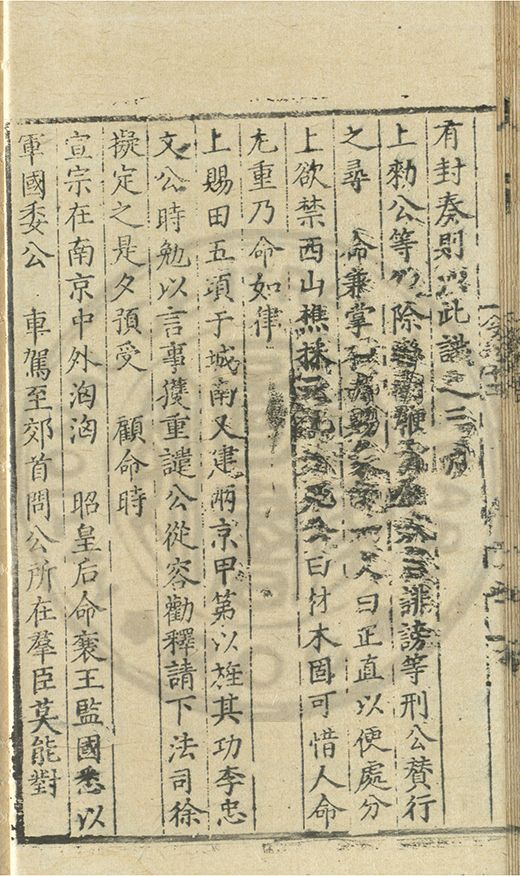 有封奏則以此識之三月
上勑公等除鞭誹謗等刑公贊行
之尋 命兼掌人曰正直以便處分
上欲禁西山樵採曰材木固可惜人命
尤重乃 命如律
上賜田五頃于城南又建兩京甲第以旌其功李忠
文公時勉以言事獲重譴公從容勸釋請下法司徐
擬定之是夕預受 顧命時
宣宗在南京中外洶洶 昭皇后命襄王監國悉以
軍國委公 車駕至郊首問公所在羣臣莫能對